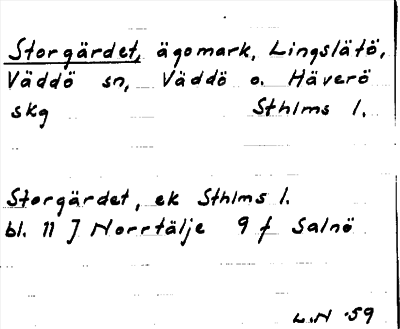 Storgärdet, ägomark, Lingslätö,
Väddö sn, Väddö o. Häverö
skg Sthlms l.
Storgärdet, ek Sthlms l.
bl. 11 J Norrtälje 9 f Salnö
L.N -59